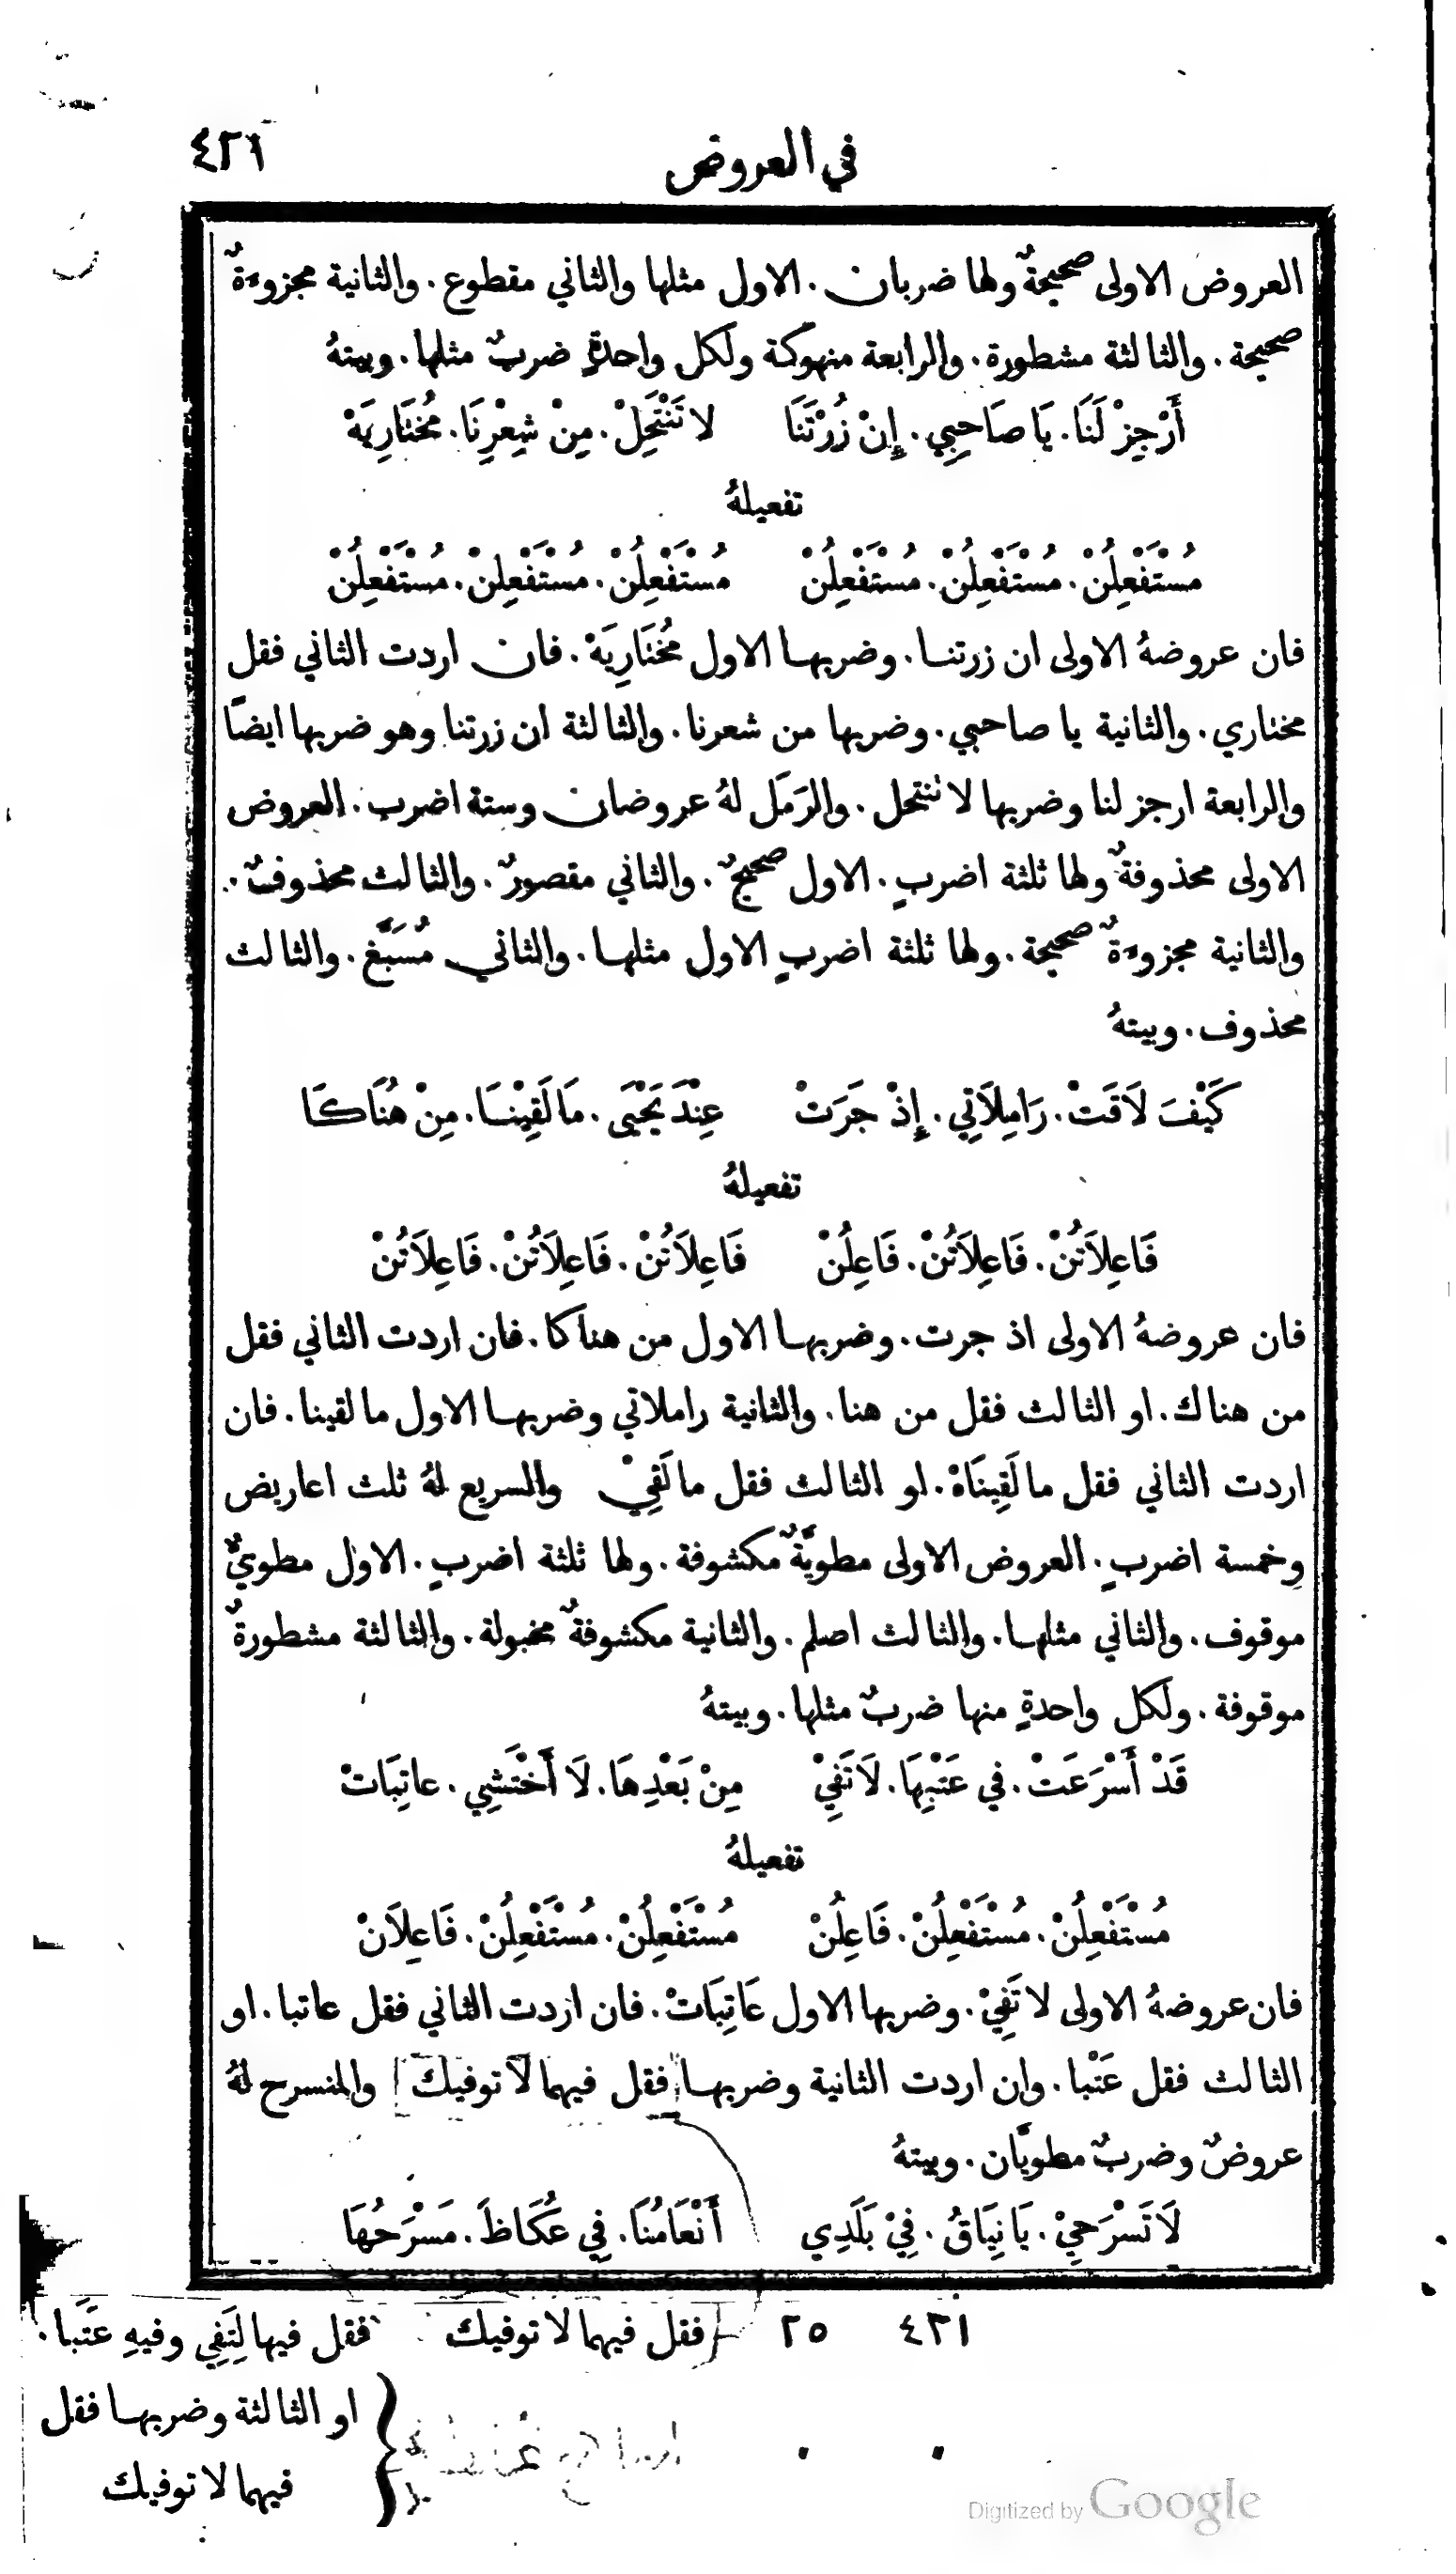 في العروض ٤٢١
العروض الاولى صحيحةٌ ولها ضربان. الاول مثلها والثاني مقطوع. والثانية مجزوءةٌ
صحيحة. والثالثة مشطورة. والرابعة منهوكة ولكل واحدةٍ ضربٌ مثلها. وبيتهُ
أَرْجِزْ لَنَا. يَا صَاحِبِي. إِنْ زُرْتَنَا لا تَنْتَحِلْ. مِنْ شِعْرِنَا. مُخْتَارِيَهْ
تفعيلهُ
مُسْتَفْعِلُنْ. مُسْتَفْعِلُنْ. مُسْتَفْعِلُنْ مُسْتَفْعِلُنْ. مُسْتَفْعِلُنْ. مُسْتَفْعِلُنْ
فان عروضهُ الاولى ان زرتنا. وضربها الاول مُخْتَارِيَهْ. فان اردت الثاني فقل
مختاري. والثانية يا صاحبي. وضربها من شعرنا. والثالثة ان زرتنا وهو ضربها ايضًا
والرابعة ارجز لنا وضربها لا تنتحل. والرَمَل لهُ عروضان وستة اضرب. العروض
الاولى محذوفةٌ ولها ثلثة اضربٍ. الاول صحيحٌ. والثاني مقصورٌ. والثالث محذوفٌ.
والثانية مجزوءةٌ صحيحة. ولها ثلثة اضربٍ الاول مثلها. والثاني مُسَبَّغ. والثالث
محذوف. وبيتهُ
كَيْفَ لَاقَتْ. رَامِلَاتِي. إِذْ جَرَتْ عِنْدَ يَحْيَى. مَا لَقِيْنَا. مِنْ هُنَاكَا
تفعيلهُ
فَاعِلَاتُنْ. فَاعِلَاتُنْ. فَاعِلُنْ فَاعِلَاتُنْ. فَاعِلَاتُنْ. فَاعِلَاتُنْ
فان عروضهُ الاولى اذ جرت. وضربها الاول من هناكا. فان اردت الثاني فقل
من هناك. او الثالث فقل من هنا. والثانية راملاتي وضربها الاول ما لقينا. فان
اردت الثاني فقل ما لَقِينَاهْ. او الثالث فقل ما لَقِيْ والسريع لهُ ثلث اعاريض
وخمسة اضربٍ. العروض الاولى مطويَّةٌ مكشوفة. ولها ثلثة اضربٍ. الاول مطويٌّ
موقوف. والثاني مثلها. والثالث اصلم. والثانية مكشوفةٌ مخبولة. والثالثة مشطورةٌ
موقوفة. ولكل واحدةٍ منها ضربٌ مثلها. وبيتهُ
قَدْ أَسْرَعَتْ. في عَتْبِهَا. لَا تَفِيْ مِنْ بَعْدِهَا. لَا أَخْتَشِي. عاتِبَاتْ
تفعيلهُ
مُسْتَفْعِلُنْ. مُسْتَفْعِلُنْ. فَاعِلُنْ مُسْتَفْعِلُنْ. مُسْتَفْعِلُنْ. فَاعِلَانْ
فان عروضهُ الاولى لا تَفِيْ. وضربها الاول عَاتِبَاتْ. فان اردت الثاني فقل عاتبا. او
الثالث فقل عَتْبا. وان اردت الثانية وضربها فقل فيهما لا توفيك والمنسرح لهُ
عروضٌ وضربٌ مطويَّان. وبيتهُ
لَا تَسْرَحِيْ. يَا نِيَاقُ. فِيْ بَلَدِي أَنْعَامُنَا. فِي عُكَاظَ. مَسْرَحُهَا
٤٢١ ٢٥ فقل فيهما لا توفيك فقل فيها لِتَفِي وفيهِ عَتَبا.
او الثالثة وضربها فقل
فيهما لا توفيك
Digitized by Google